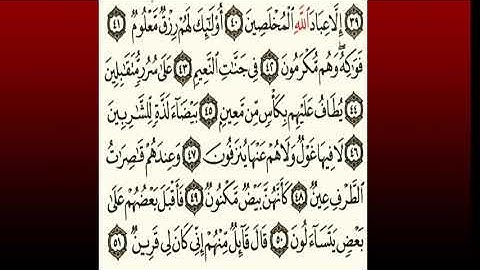 ٣٩ إِلَّا عِبَادَ اللَّهِ الْمُخْلَصِينَ ٤٠ أُولَٰئِكَ لَهُمْ رِزْقٌ مَعْلُومٌ ٤١
فَوَاكِهُ ۖ وَهُمْ مُكْرَمُونَ ٤٢ فِي جَنَّاتِ النَّعِيمِ ٤٣ عَلَىٰ سُرُرٍ مُتَقَابِلِينَ
٤٤ يُطَافُ عَلَيْهِمْ بِكَأْسٍ مِنْ مَعِينٍ ٤٥ بَيْضَاءَ لَذَّةٍ لِلشَّارِبِينَ
٤٦ لَا فِيهَا غَوْلٌ وَلَا هُمْ عَنْهَا يُنْزَفُونَ ٤٧ وَعِنْدَهُمْ قَاصِرَاتُ
الطَّرْفِ عِينٌ ٤٨ كَأَنَّهُنَّ بَيْضٌ مَكْنُونٌ ٤٩ فَأَقْبَلَ بَعْضُهُمْ عَلَىٰ
بَعْضٍ يَتَسَاءَلُونَ ٥٠ قَالَ قَائِلٌ مِنْهُمْ إِنِّي كَانَ لِي قَرِينٌ ٥١